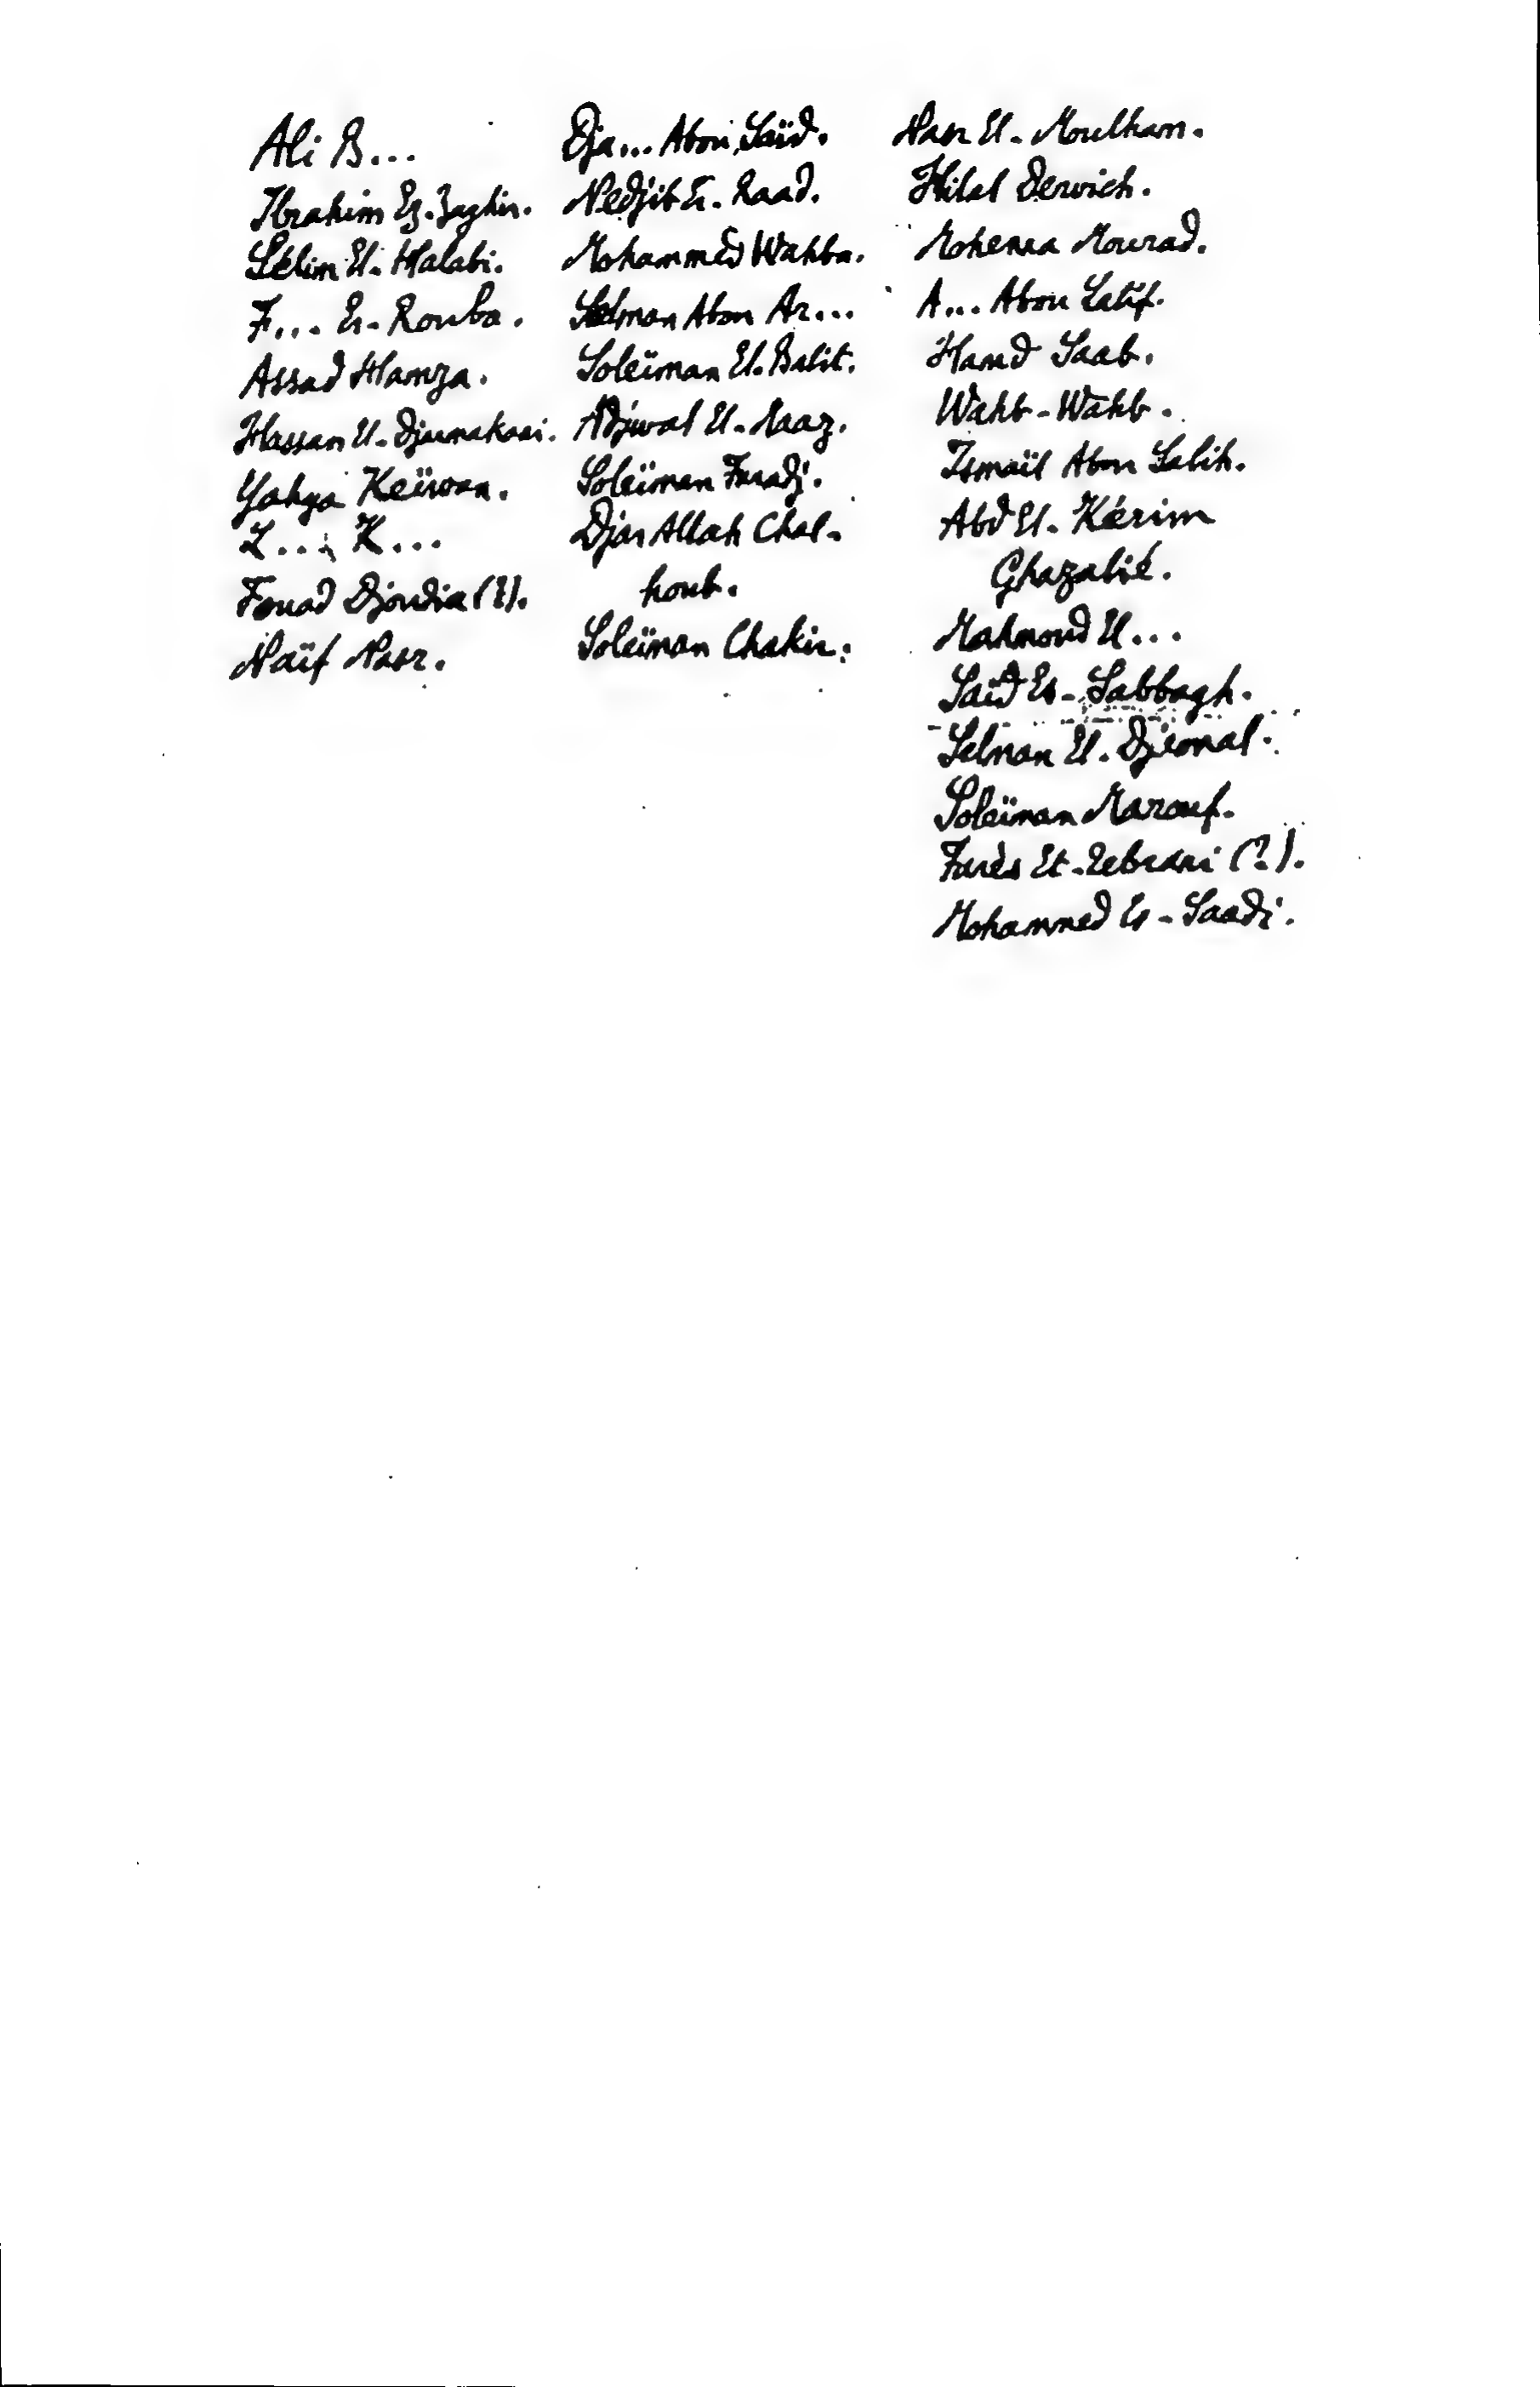 Ali B...
Ibrahim Ez-Zaghir.
Sélim El-Halabi.
F... Er-Rouba.
Assad Hamza.
Hassan El-
Yahya Keïwan.
Z... K...
Fouad Djoudia (?).
Naïf Nasr.
Dja... Abou Saïd.
Nedjib Er-Raad.
Mohammed Wahba.
Selman Abou Ar...
Soleïman El-Balit.
Adjwad El-
Soleïman Faradj.
Djar Allah Chal-
houb.
Soleïman Chakir.
Nasr El-Moulham.
Hilal Dervich.
Mohenna Mourad.
A... Abou Latif.
Hamd Saab.
Wahb-Wahb.
Ismaïl Abou Salih.
Abd El-Kérim
Ghazalié.
Mahmoud El...
Saïd Es-Sabbagh.
Selman El-Djemal.
Soleïman Marouf.
Farès Et- (?).
Mohammed Es-Saadi.